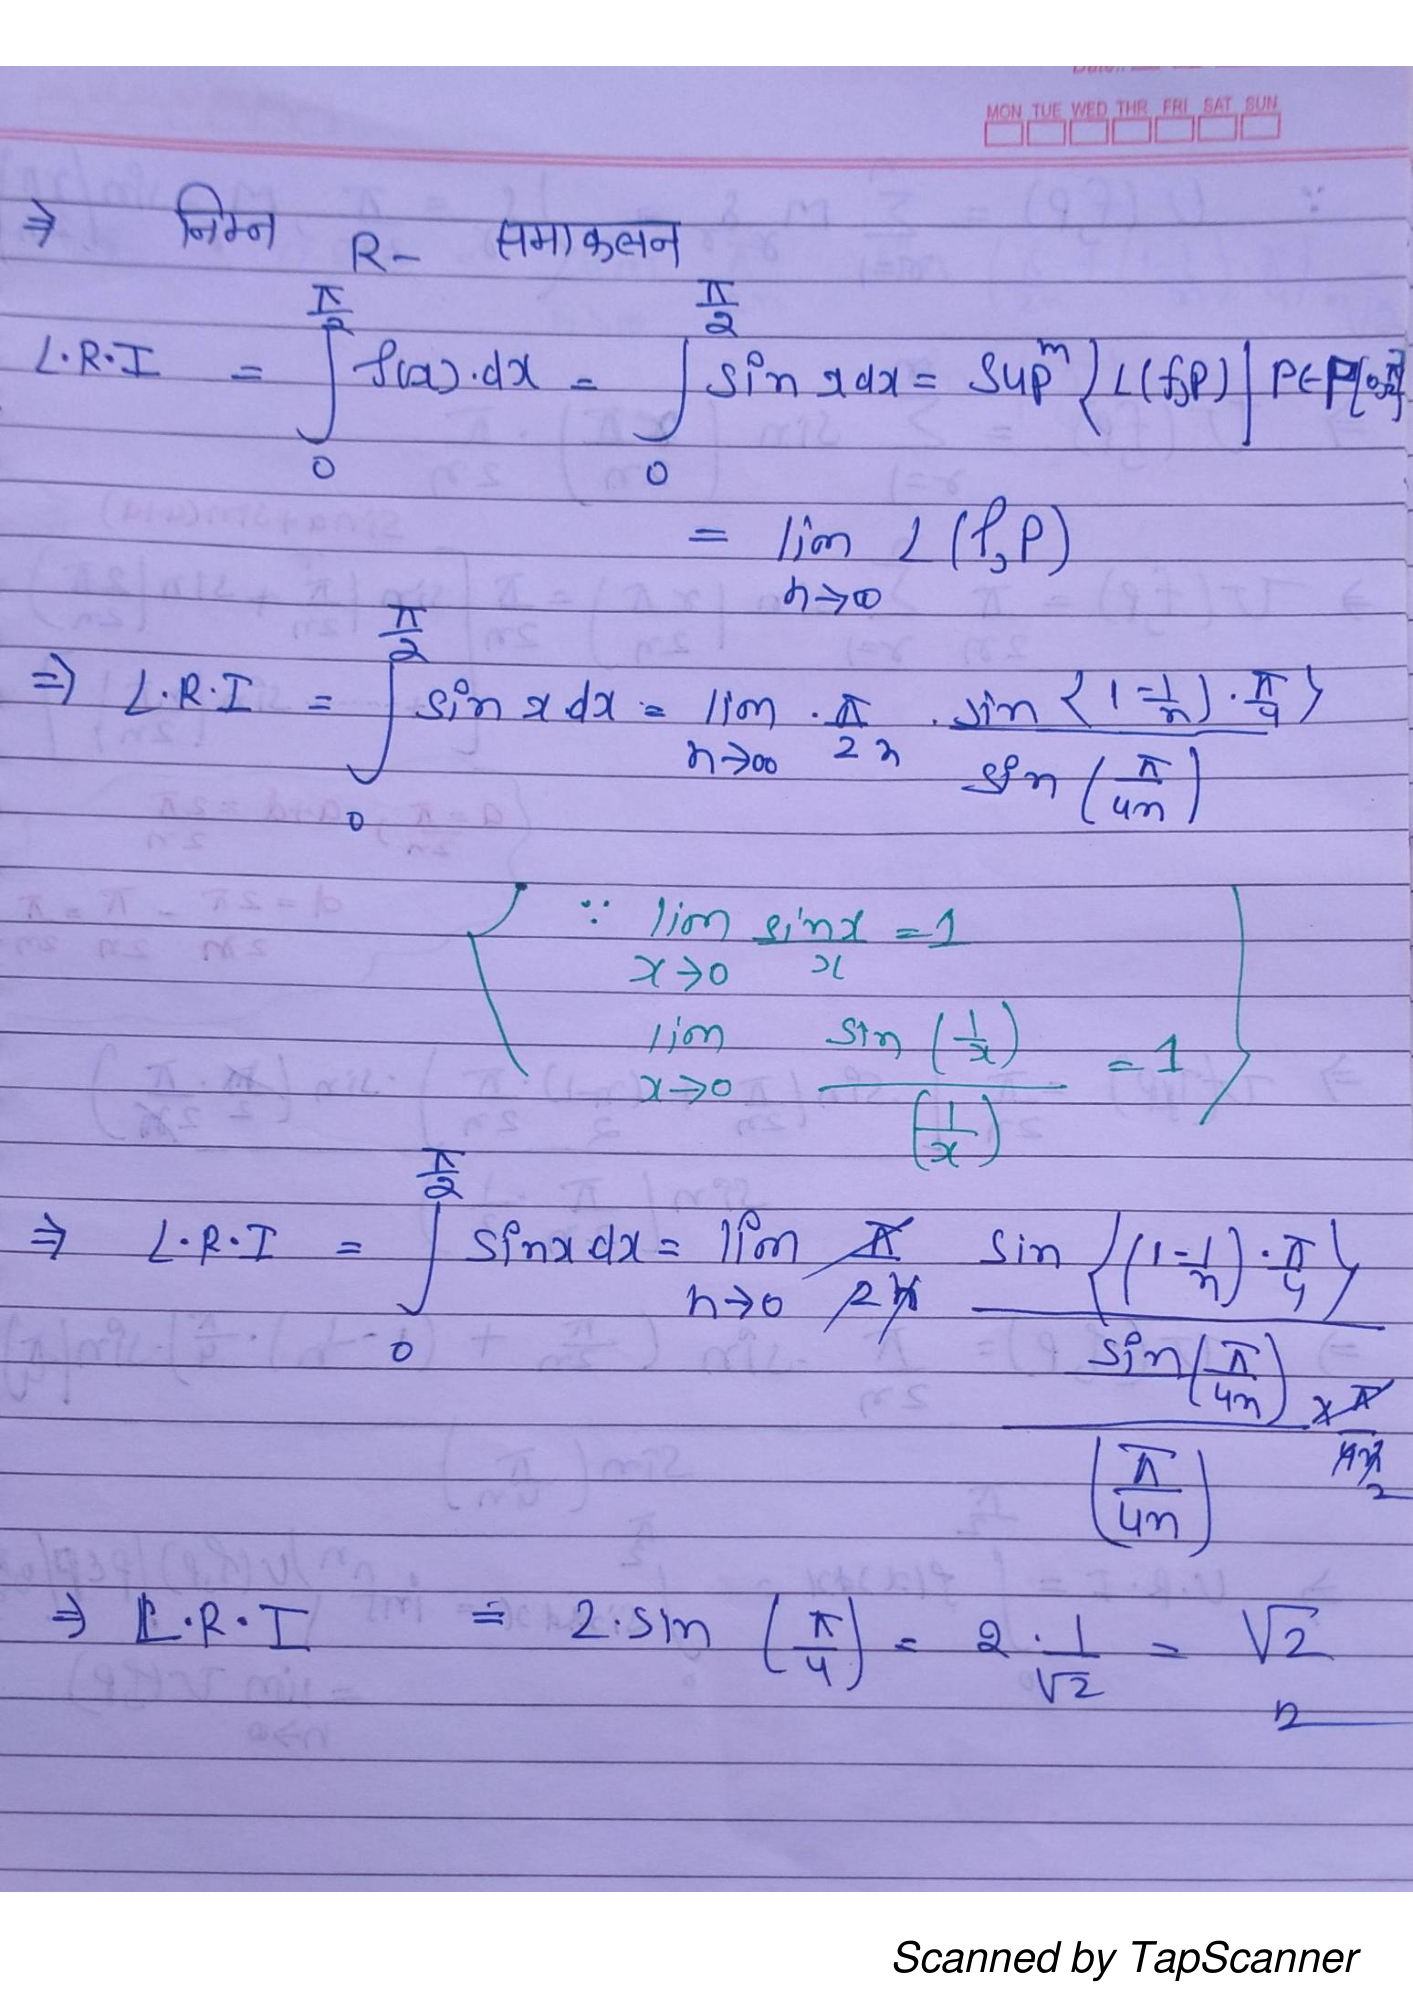 MON TUE WED THR FRI SAT SUN
⇒ निम्न R- समाकलन
L.R.I = ∫_0^{π/2} f(x).dx = ∫_0^{π/2} sin x dx = Sup^m {L(f,P) | P∈P[0,π/2]
= lim_{n→∞} L(f,P)
⇒ L.R.I = ∫_0^{π/2} sin x dx = lim_{n→∞} . π/2n . sin{(1-1/n).π/4} / sin(π/4n)
{∵ lim_{x→0} sinx/x = 1
lim_{x→0} sin(1/x) / (1/x) = 1}
⇒ L.R.I = ∫_0^{π/2} sinx dx = lim_{n→0} π/2n sin{(1-1/n).π/4} / (sin(π/4n) / (π/4n) × π/4n)
2
⇒ L.R.I = 2.sin(π/4) = 2.1/√2 = √2
Scanned by TapScanner